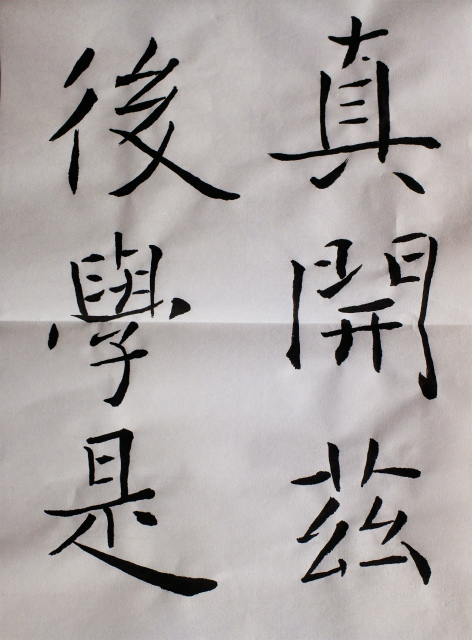 真開茲
後學是